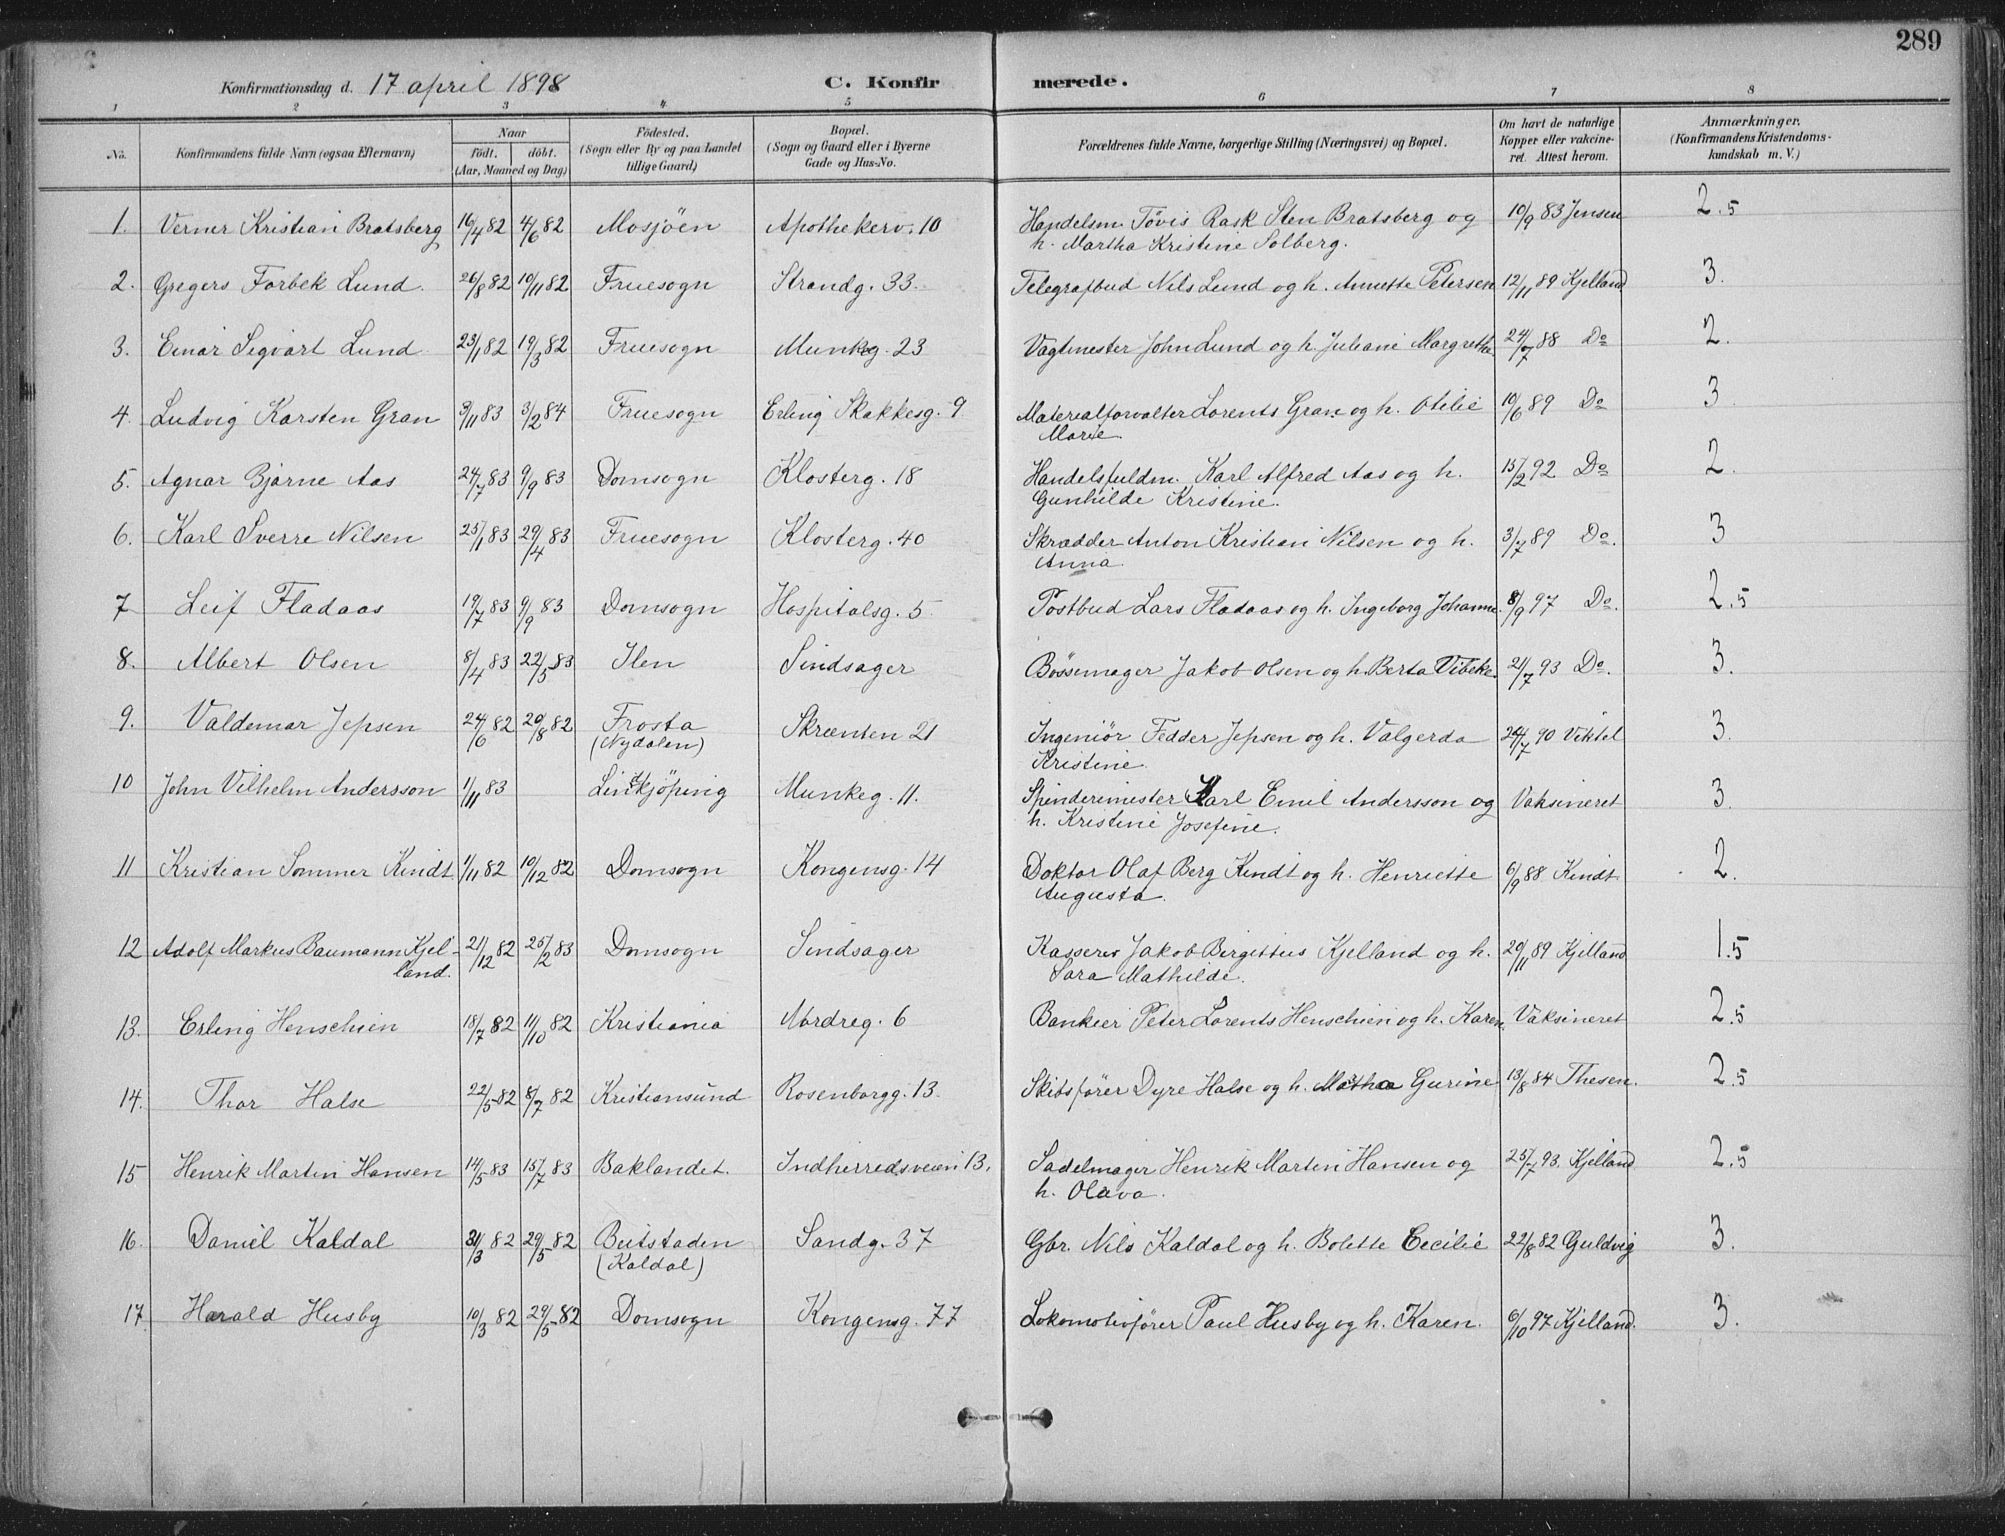 289
Konfirmationsdag d. 17 april 1898 C. Konfirmerede.
1 2 3 4 5 6 7 8
No. Konfirmandens fulde Navn (ogsaa Efternavn) Naar født. døbt. (Aar, Maaned og Dag) Fødested. (Sogn eller By og paa Landet tillige Gaard) Bopæl. (Sogn og Gaard eller i Byerne Gade og Hus-No. Forældrenes fulde Navne, borgerlige Stilling (Næringsvei) og Bopæl. Om havt de naturlige Kopper eller vakcineret. Attest herom. Anmærkninger. (Konfirmandens Kristendomskundskab m. V.)
1. Verner Kristian Bratsberg 16/4 82 4/6 82 Mosjöen Apothekerv. 10 Handelsm. Tövis Rask Sten Bratsberg og 10/9 83 Jensen 2.5
h. Martha Kristine Solberg.
2. Gregers Forbek Lund. 26/8 82 10/11 82 Fruesogn Strandg. 33. Telegrafbud Nils Lund og h. Annette Petersen 12/11 89 Kjelland 3.
3. Einar Sigvart Lund 23/1 82 19/3 82 Fruesogn Munkeg. 23 Vagtmester John Lund og h. Juliane Margrethe 24/7 88 Do 2.
4. Ludvig Karsten Gran 9/11 83 3/2 84 Fruesogn Erling Skakkesg. 9 Materialforvalter Lorents Gran og h. Otilie 10/6 89 Do 3
Marie
5. Agnar Bjarne Aas 24/7 83 9/9 83 Domsogn Klosterg. 18 Handelsfuldm. Karl Alfred Aas og h. 15/2 92 Do 2.
Gunhilde Kristine.
6. Karl Sverre Nilsen 25/1 83 29/4 83 Fruesogn Klosterg. 40 Skrædder Anton Kristian Nilsen og h. 3/7 89 Do. 3
Anna
7 Leif Fladaas 19/7 83 9/9 83 Domsogn Hospitalsg. 5. Postbud Lars Fladaas og h. Ingeborg Johanne. 8/9 97 Do. 2.5
8. Albert Olsen 8/4 83 22/5 83 Ilen Sindsager Bössemager Jakob Olsen og h. Berta Vibeke. 21/7 93 Do. 3.
9. Valdemar Jepsen 24/6 82 20/8 82 Frosta Skrænten 21 Ingeniör Fedder Jepsen og h. Valgerda 24/7 90 Viktel 3.
(Nydalen) Kristine
10 John Vilhelm Andersson 1/11 83 Linkjöping Munkeg. 11. Spinderimester Karl Emil Andersson og Vaksineret 3.
h. Kristine Josefine.
11 Kristian Sommer Kindt 1/11 82 10/12 82 Domsogn Kongensg. 14 Doktor Olaf Berg Kindt og h. Henriette 6/9 88 Kindt 2.
Augusta.
12 Adolf Markus Baumann Kjel- 21/12 82 25/2 83 Domsogn Sindsager Kasserer Jakob Birgittus Kjelland og h. 20/11 89 Kjelland 1.5
land. Sara Mathilde.
13. Erling Henschien 18/7 82 11/10 82 Kristiania Nordreg. 6 Bankier Peter Lorents Henschien og h. Karen. Vaksineret 2.5
14. Thor Halse 22/5 82 8/7 82 Kristiansund Rosenborgg. 13. Skibsförer Dyre Halse og h. Marthaa Gurine 13/8 84 Thesen. 2.5
15 Henrik Martin Hansen 14/5 83 15/7 83 Baklandet. Indherredsveien 13. Sadelmager Henrik Martin Hansen og 25/7 93. Kjelland 2.5
h. Olava.
16. Daniel Kaldal 31/3 82 29/5 82 Beitstaden Sandg. 37 Gbr. Nils Kaldal og h. Bolette Cecilie 22/8 82 Guldvig 3.
(Kaldal)
17. Harald Husby 10/3 82 29/5 82 Domsogn Kongensg. 77 Lokomotivförer Paul Husby og h. Karen. 6/10 97 Kjelland. 3.